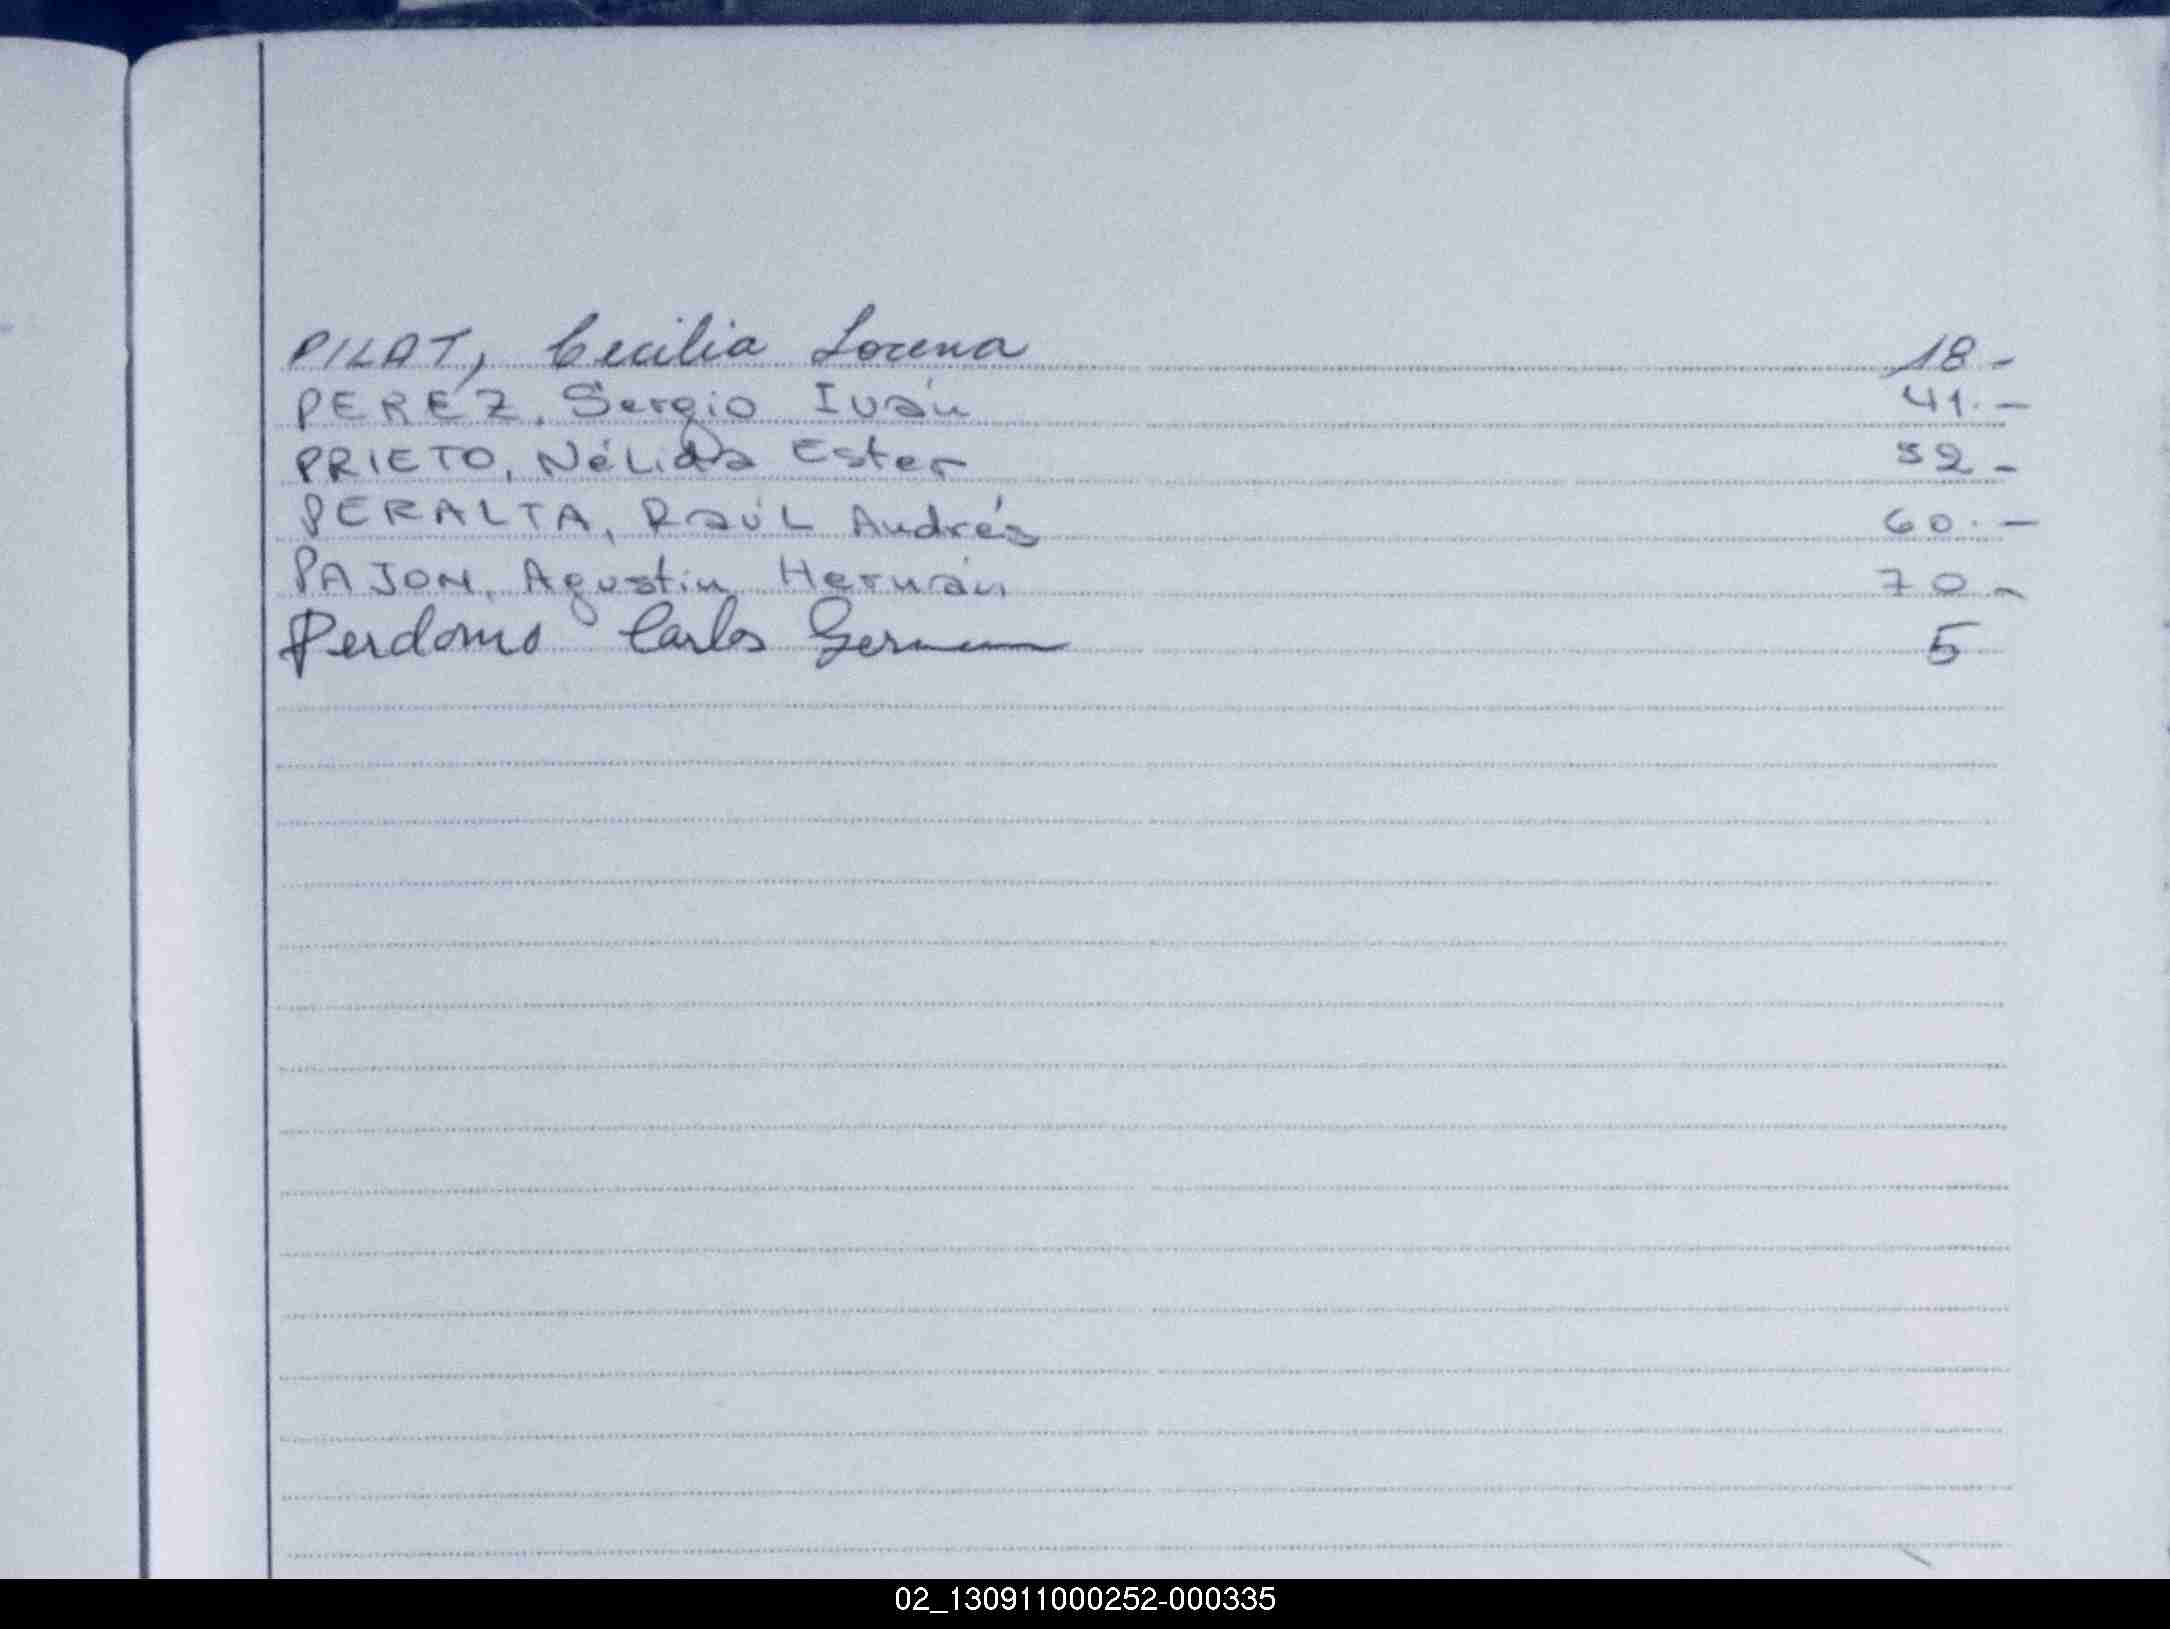 PILAT, Cecilia Lorena 18.-
PEREZ, Sergio Iván 41.-
PRIETO, Nélida Ester 52-
PERALTA, Raúl Andrés 60.-
PAJON, Agustin Hernán 70.-
Perdomo Carlos German 5
02_130911000252-000335